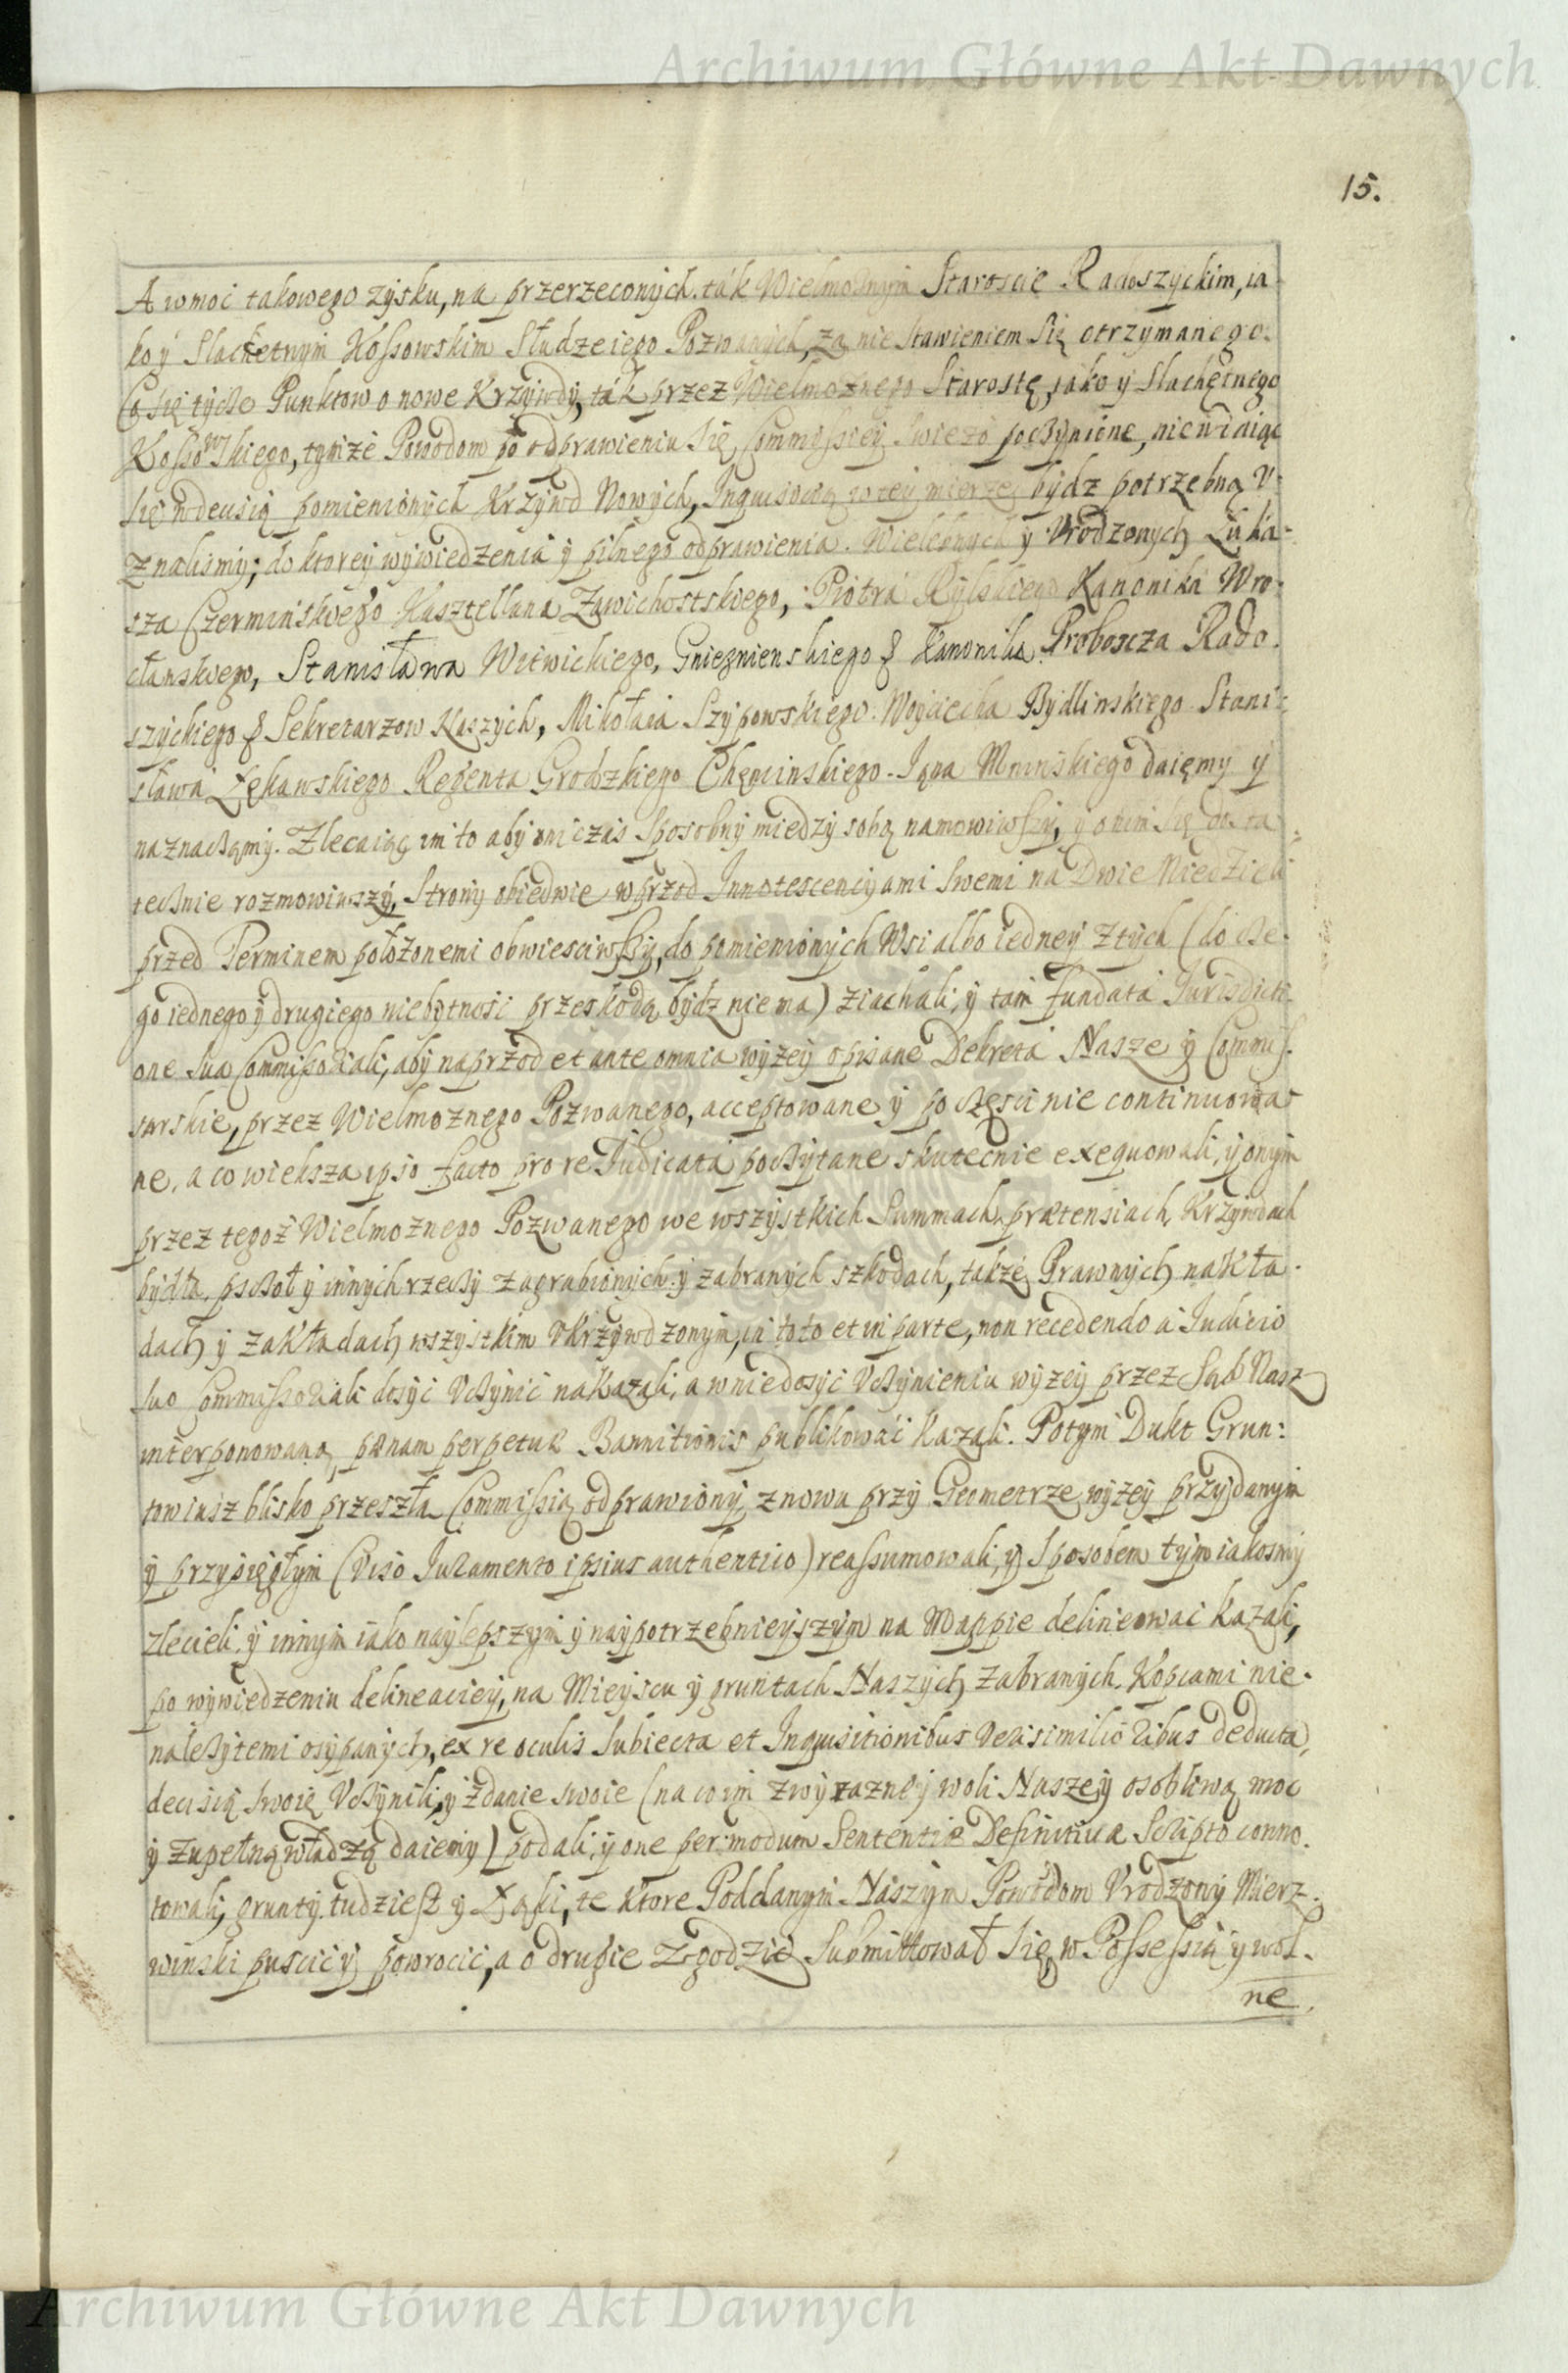 Archiwum Główne Akt Dawnych
15.
A wmoc takowego zysku, na przerzeconych ták Wielmożnym Staroscie Radoszyckim, ia-
ko ÿ Slachetnym Kossowskim Słudze iego Pozwanych, za nie Stawieniem Się otrzymanego.
Co Się tycze Punktow o nowe Krzywdy, ták przez Wielmożnego Starostę, jako ÿ Slachetnego
Kossowskiego, tymże Powodom po odprawieniu Się Commissiey swiezo poczynione, niewdaiąc
Się w decisią pomienionych Krzywd Nowych, Inquisitią w tey mierze bydz potrzebną V-
znalismy; do ktorey wywiedzenia ÿ pilnego odprawienia. Wielebnych ÿ Vrodzonych Łuka-
sza Czerminskiego Kasztellana Zawichostskiego, Piotra Rylskiego Kanonika Wro-
cłanskiego, Stanisława Witwickiego, Gnieznienskiego & Kanonika Proboscza Rado-
szyckiego & Sekretarzow Naszych, Mikołaia Szypowskiego. Woyciecha Bydlinskiego Stani-
sława Łękawskiego Regenta Grodzkiego Chęcinskiego. Iana Mninskiego daięmy ÿ
naznaczamy. Zlecaiąc im to aby oni czas Sposobny miedzy sobą namowiwszy, ÿ o nim Się dosta-
tecznie rozmowiwszy, Strony obiedwie wprzod Innotescencyami Swemi na Dwie Niedzieli
przed Terminem położonemi obwiesciwszy, do pomienionych Wsi albo iedney z tych (do cze-
go iednego ÿ drugiego niebytnosc przeskodą bydz nie ma) ziachali, ÿ tam fundata Jurisdicti-
one sua Commissoriali, aby naprzod et ante omnia wyzey opisane Dekreta Nasze ÿ Commis-
sarskie, przez Wielmoznego Pozwanego, acceptowane ÿ po częsci nie continuowa-
ne, a co wieksza ipso facto pro re Judicata poczytane skutecnie exequowali, ÿ onym
przez tegoż Wielmoznego Pozwanego we wszystkich Summach, prætensiach, Krzywdach
bydła, psczoł ÿ innych rzeczy zagrabionych ÿ zabranych szkodach, także Prawnych nakła-
dach ÿ zakładach wszystkim Vkrzywdzonym, in toto et in parte, non recedendo a Judicio
suo Commissoriali dosyc Vczynic nakazali, a w niedosyc Vczynieniu wyzey przez Sąd Nasz
interponowaną, pænam perpetuæ Bannitionis publikowac kazali. Potym Dukt Grun-
tow iusz blisko przeszłą Commissią odprawiony, znowu przy Geometrze wyzey przydanym
ÿ przysięgłym (Viso Juramento ipsius authentico) reassumowali, ÿ Sposobem tym iakosmy
zlecieli, ÿ innym iako naylepszym ÿ naypotrzebnieyszym na Mappie delineowac kazali,
po wywiedzeniu delineaciey, na Mieyscu ÿ gruntach Naszych zabranych, Kopcami nie-
należytemi osypanych, ex re oculis subiecta et Inquisitionibus Verisimilioribus deducta,
decisią swoię Vczynili, ÿ zdanie swoie (na co im z wyrazney woli Naszey osobliwą moc
ÿ zupełną władzą daiemy) podali, ÿ one per modum Sententiæ Definitivæ Scripto conno-
towali, grunty tudziesz ÿ Łąki, te ktore Poddanym Naszym Powodom Vrodzony Mierz-
winski puscic ÿ powrocic, a o drugie zgodzic Submittował Się, w Possessią ÿ wol-
ne.
Archiwum Główne Akt Dawnych